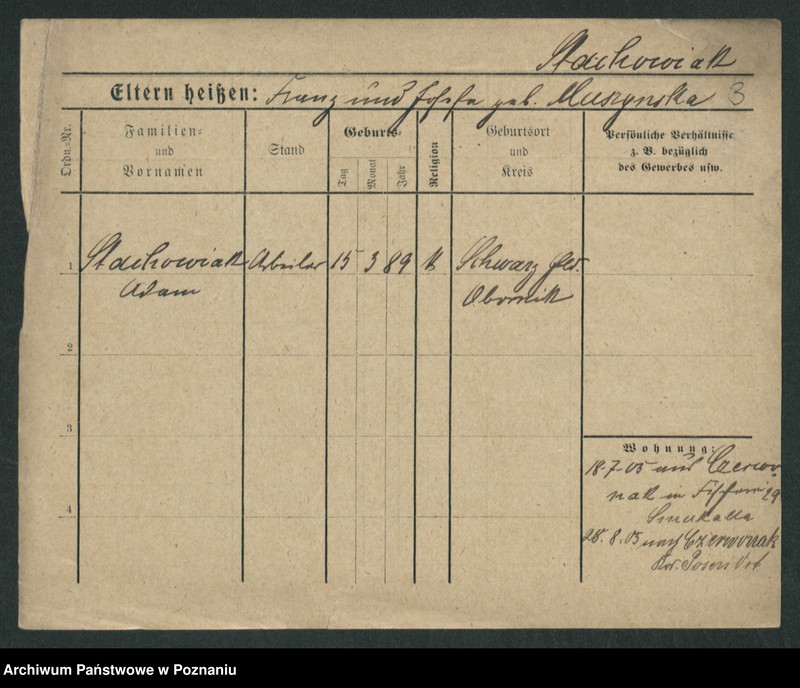 Stachowiak
Eltern heißen: Franz und Josefa geb. Muszynska 3
Ordn.-Nr.
Familien-
und
Vornamen
Stand
Geburts-
Tag
Monat
Jahr
Religion
Geburtsort
und
Kreis
Persönliche Verhältnisse
z. B. bezüglich
des Gewerbes usw.
1 Stachowiak Arbeiter 15 3 89 k Schwarz
Adam Obornik
2
3
4
Wohnung:
18.7.05 aus Czerwo
nak in Fischerei 29
28.8.05 nach Czerwonak
Kr. Posen Ost
Archiwum Państwowe w Poznaniu